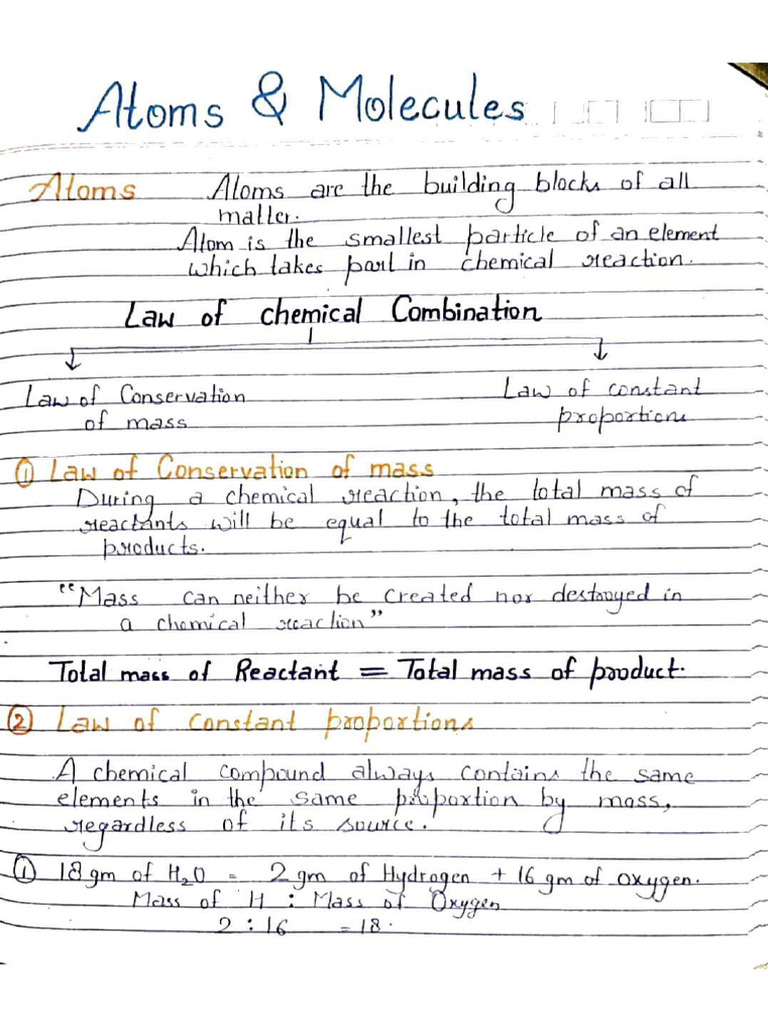 Atoms & Molecules
Atoms Atoms are the building blocks of all
matter.
Atom is the smallest particle of an element
which takes part in chemical reaction.
Law of chemical Combination
Law of Conservation
of mass
Law of constant
proportions
① Law of Conservation of mass
During a chemical reaction, the total mass of
reactants will be equal to the total mass of
products.
"Mass can neither be created nor destroyed in
a chemical reaction"
Total mass of Reactant = Total mass of product.
② Law of constant proportions
A chemical compound always contains the same
elements in the same proportion by mass,
regardless of its source.
① 18 gm of H₂O = 2 gm of Hydrogen + 16 gm of oxygen.
Mass of H : Mass of Oxygen
2 : 16 = 18.